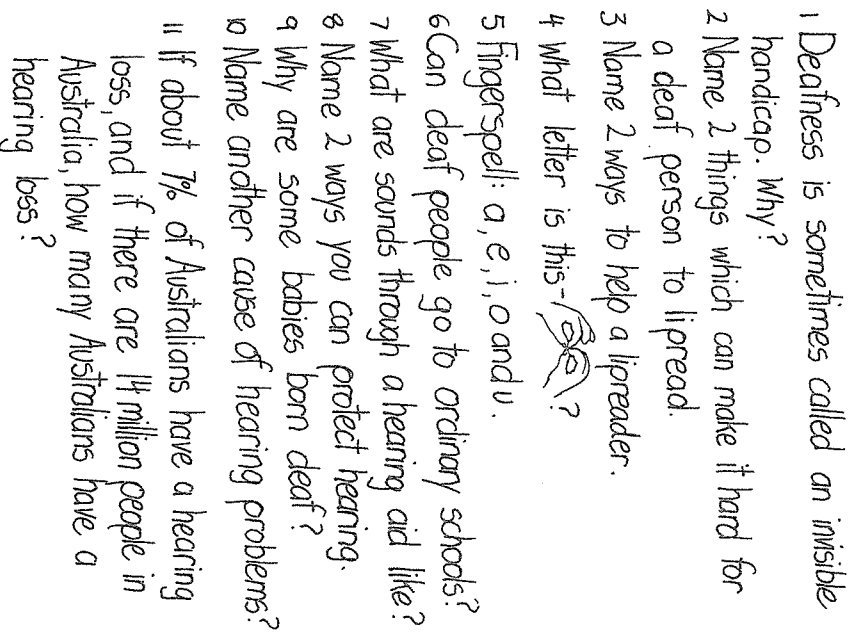 1 Deafness is sometimes called an invisible
handicap. Why?
2 Name 2 things which can make it hard for
a deaf person to lipread.
3 Name 2 ways to help a lipreader.
4 What letter is this- ?
5 Fingerspell: a, e, i, o and u.
6 Can deaf people go to ordinary schools?
7 What are sounds through a hearing aid like?
8 Name 2 ways you can protect hearing.
9 Why are some babies born deaf?
10 Name another cause of hearing problems?
11 If about 7% of Australians have a hearing
loss, and if there are 14 million people in
Australia, how many Australians have a
hearing loss?